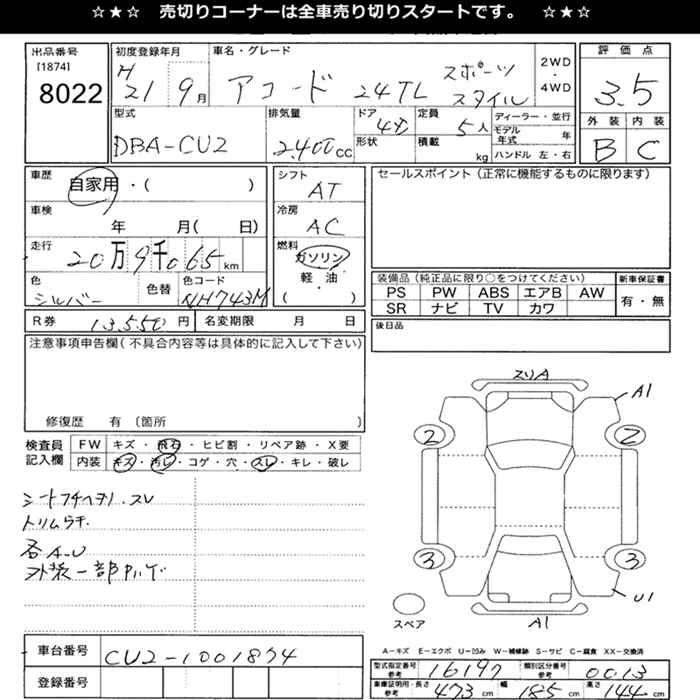 ☆★☆ 売切りコーナーは全車売り切りスタートです。 ☆★☆
出品番号
[1874]
8022
初度登録年月
H21 9月
車名・グレード
アコード 24TL スポーツスタイル
2WD
・
4WD
評価点
3.5
外装 内装
B C
型式
DBA-CU2
排気量
2,400cc
ドア
4D
形状
定員
5人
積載
kg
ディーラー・並行
モデル年式 年
ハンドル 左・右
車歴
自家用・( )
車検
年 月( 日)
走行
20万9千065km
色
シルバー
色替
色コード
NH743M
シフト
AT
冷房
AC
燃料
ガソリン
軽・油
( )
セールスポイント(正常に機能するものに限ります)
装備品(純正品に限り○をつけてください)
新車保証書
PS PW ABS エアB AW
SR ナビ TV カワ
有・無
後日品
R券 13,550円 名変期限 月 日
注意事項申告欄(不具合内容等は具体的に記入して下さい)
修復歴 有〔箇所 〕
検査員記入欄
FW キズ・飛石・ヒビ割・リペア跡・X要
内装 キズ・汚レ・コゲ・穴・スレ・キレ・破レ
トリムラチ
各A.U
スリA
A1
2 2
3 3
U1
A1
スペア
A−キズ E−エクボ U−凹み W−補修跡 S−サビ C−腐食 XX−交換済
車台番号
CU2-1001874
登録番号
型式指定番号
参考
16197
類別区分番号
参考
0013
車庫証明用・長さ
参考
473cm
幅
185cm
高さ
144cm